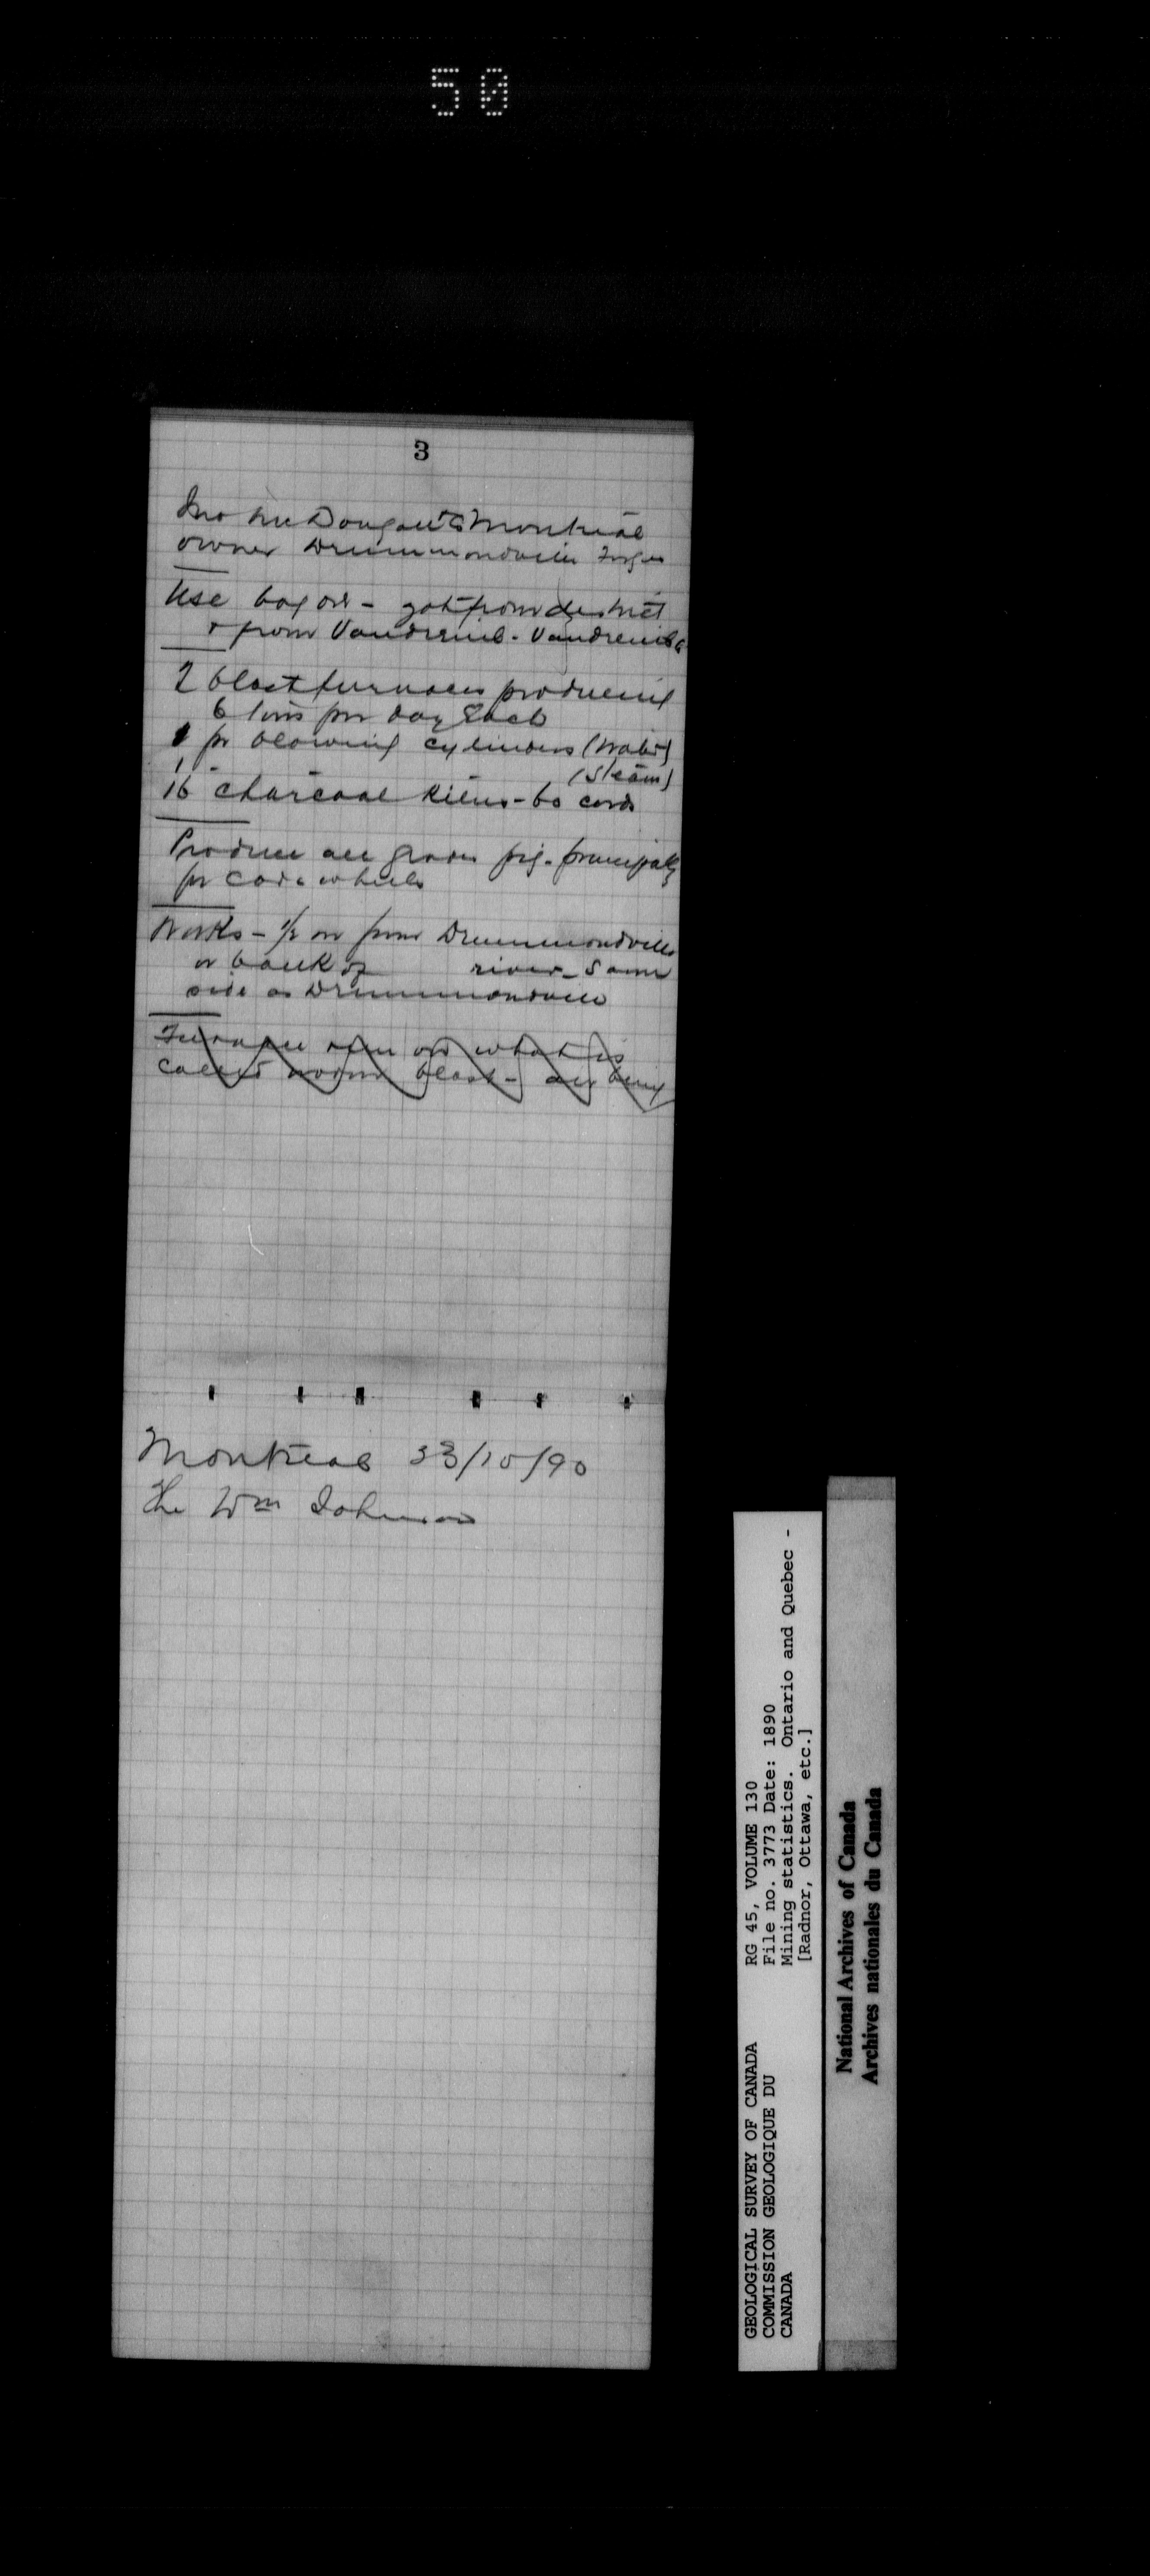 50
3
Jno McDougall & Co Montreal
owner Drummondville Forges
Use bog ore - got from district
& from Vaudreuil - Vaudreuil Co
2 blast furnaces producing
6 tons per day Each
1 pr blowing cylinders (Water)
1 " (Steam)
16 charcoal Kilns - 60 cords
Produce all grades pig - principally
for car wheels
Works - 1/2 m from Drummondville
on bank of river - Same
side as Drummondville
Furnaces run on what is
called warm blast - air being
Montreal 23/10/90
The Wm Johnson
RG 45, VOLUME 130
File no. 3773 Date: 1890
Mining statistics. Ontario and Quebec -
[Radnor, Ottawa, etc.]
GEOLOGICAL SURVEY OF CANADA
COMMISSION GEOLOGIQUE DU
CANADA
National Archives of Canada
Archives nationales du Canada